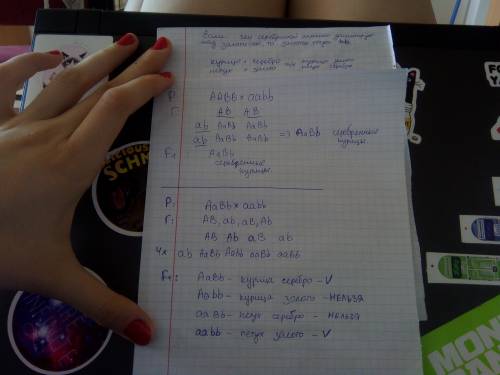 Если ген серебряной окраски доминирует
над золотистым, то золото
курица = серебро курица золото
петух = золото петух серебро
P: AABb × aabb
Г: AB AB
ab AaBb AaBb
ab AaBb AaBb => AaBb серебряные курицы
F1: AaBb
серебряные курицы.
P: AaBb × aabb
Г: AB, ab, aB, Ab
AB Ab aB ab
4x ab AaBb Aabb aaBb aabb
F1: AaBb - курица серебро - V
Aabb - курица золото - НЕЛЬЗЯ
aaBb - петух серебро - НЕЛЬЗЯ
aabb - петух золото - V
MON